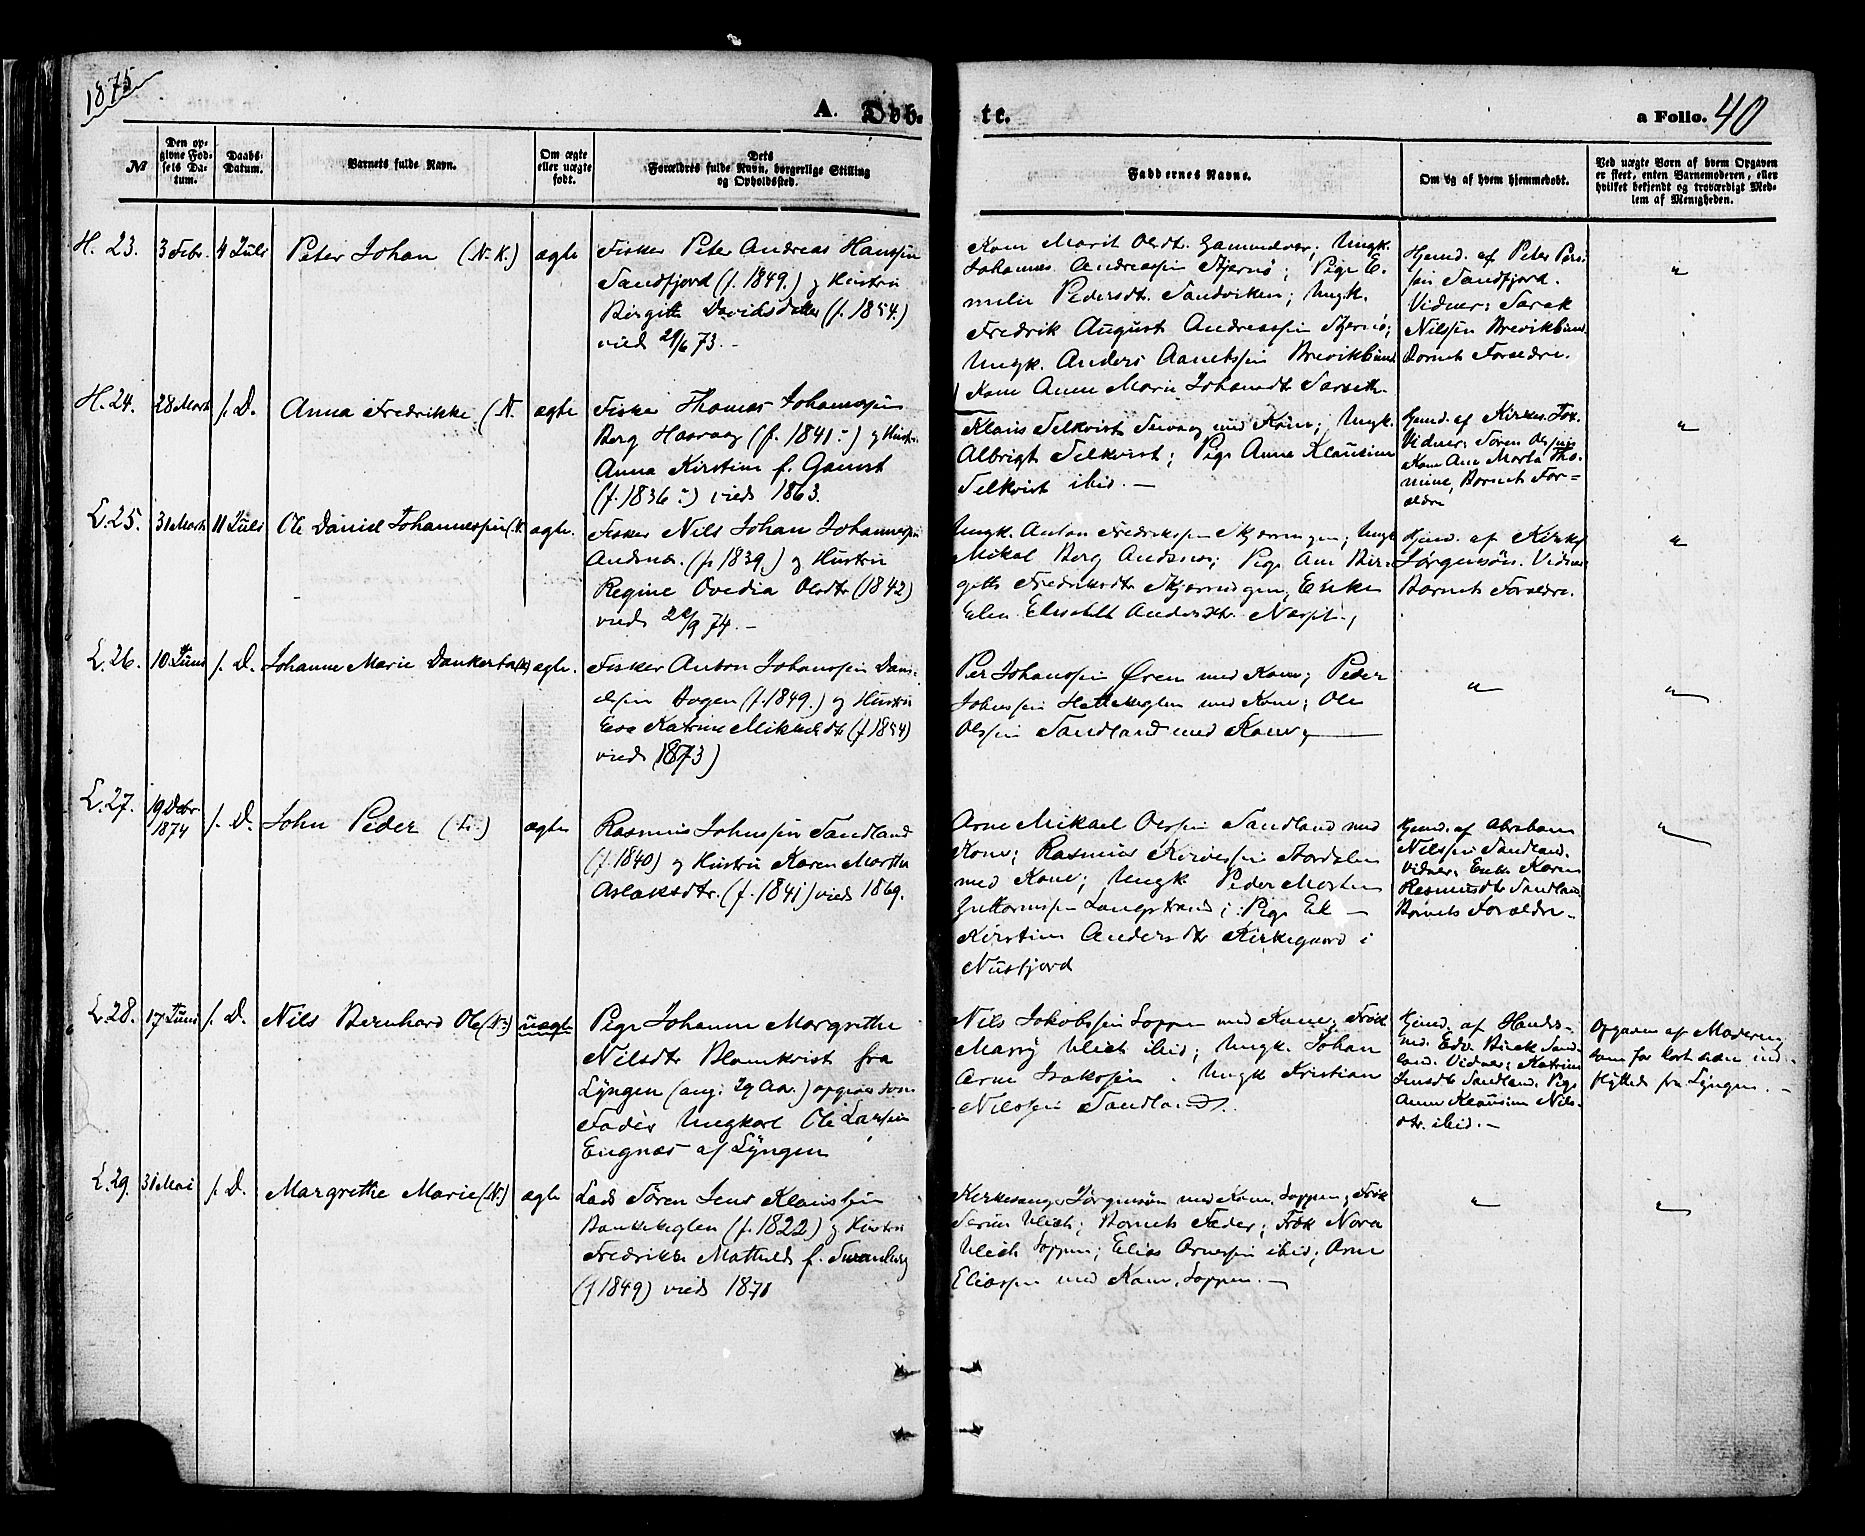 1875
A. Døb-
te.
a Folio. 40
№
Den op-
givne Fød-
sels Da-
tum.
Daabs-
Datum.
Barnets fulde Navn.
Om ægte
eller uægte
født.
Dets
Forældres fulde Navn, borgerlige Stilling
og Opholdssted.
Faddernes Navne.
Om og af hvem hjemmedøbt.
Ved uægte Børn af hvem Opgaven
er skeet, enten Barnemoderen, eller
hvilket bekjendt og troværdigt Med-
lem af Menigheden.
H. 23. 3 Febr. 4 Juli Peter Johan (N. K.) ægte
Fisker Peter Andreas Hanssen
Sandfjord (f. 1849.) og Hustru
Birgitte Davidsdatter (f. 1854.)
vied 29/6 73. –
Kone Marit Olsdt. Gammelvær; Ungk.
Johannes Andreassen Stjernø; Pige E-
milie Pedersdt. Sandviken; Ungk.
Fredrik August Andreassen Stjernø;
Ungk. Anders Brevikbund
Kone Anne Marie Johansdt
Hjemd. af Peter Pers-
sen Sandfjord.
Vidner: Sarak
Nilssen Brevikbund
Barnets Forældre.
"
H. 24. 28 Marts s. D. Anna Fredrikke (N. ægte
Fisker Thomas Johannessen
Berg Haavaag (f. 1841) og Hustru
Anna Kirstine f. Gamst
(f. 1836) vied 1863.
Klaus Selkvist med Kone; Ungk.
Albrigt Selkvist; Pige Anne Klausine
Selkvist ibid. –
Hjemd. af Kirkes.
Vidner: Søren Olssen
Kone Ane Marta Tho-
mine, Barnets For=
ældre
"
L. 25. 31 Marts 11 Juli Ole Daniel Johannessen (N. ægte.
Fisker Nils Johan Johannessen
Andsnæs. (f. 1839.) og Hustru
Regine Ovedia Olsdtr (1842)
vied 20/9 74. –
Ungk. Anton Fredriksen Skjerningen; Ungk
Mikal Berg Andsnæs; Pige Ane Bir-
gitte Fredriksdtr Skjerningen; Enke
Elen Elisabet Andersdtr.
Hjemd. af Kirkes
Jørgensøn. Vidner
Barnets Forældre.
"
L. 26. 10 Juni s. D. Johanne Marie Dankerta ægte.
Fisker Anton Johanssen Dani-
elsen (f. 1849.) og Hustru
Eva Katrine Mikkelsdtr (f 1854)
vied (1873)
Per Johanssen Øren med Kone; Peder
Johnssen med Kone; Ole
Olssen Sandland med Kone;
"
"
L. 27. 19 Decbr
1874 s. D. John Peder ægte
Rasmus Johnssen Sandland
(f. 1840) og Hustru Karen Marthe
Aslaksdtr. (f. 1841) vied 1869.
Arne Mikael Olssen Sandland med
Kone; Rasmus med Kone; Ungk Peder Morten
Guttormssen Langstrand; Pige
Kirstine Andersdtr Kirkegaard i
Nusfjord
Hjemd. af Abraham
Nilssen Sandland.
Vidner: Enke Karen
Rasmusdtr Sandland
Barnets Forældre.
"
L. 28. 17 Juni s. D. Nils Bernhard Ole (N.) uægte
Pige Johanne Margrethe
Nilsdtr Blomkvist fra
Lyngen (ang. 29 Aar.) opgives som
Fader Ungkarl Ole Larsen
Engnæs af Lyngen
Nils Jakobssen Loppen med Kone; Frøk
Marry Ulich ibid; Ungk. Johan
Arne Isakssen. Ungk Kristian
Nilssen Sandland.
Hjemd. af Handels-
md. Edv. Buck Sand-
land. Vidner: Katrine
Jensdtr Sandland. Pige
Anne Klausine Nils-
dtr. ibid. –
Opgaven af Moderen
som for kort siden ind-
flyttede fra Lyngen. –
L. 29. 31 Mai s. D. Margrethe Marie (N.) ægte
Søren Jens Klaussen
(f. 1822) og Hustru
Fredrikke Mathilde f. Svanberg
(f 1849) vied 1871
Kirkesanger Jørgensøn med Kone, Loppen; Frøk
Serine Ulich; Barnets Fader; Frøk Nora
Ulich Loppen; Elias Arnessen ibid; Arne
Eliassen med Kone, Loppen. –
"
"